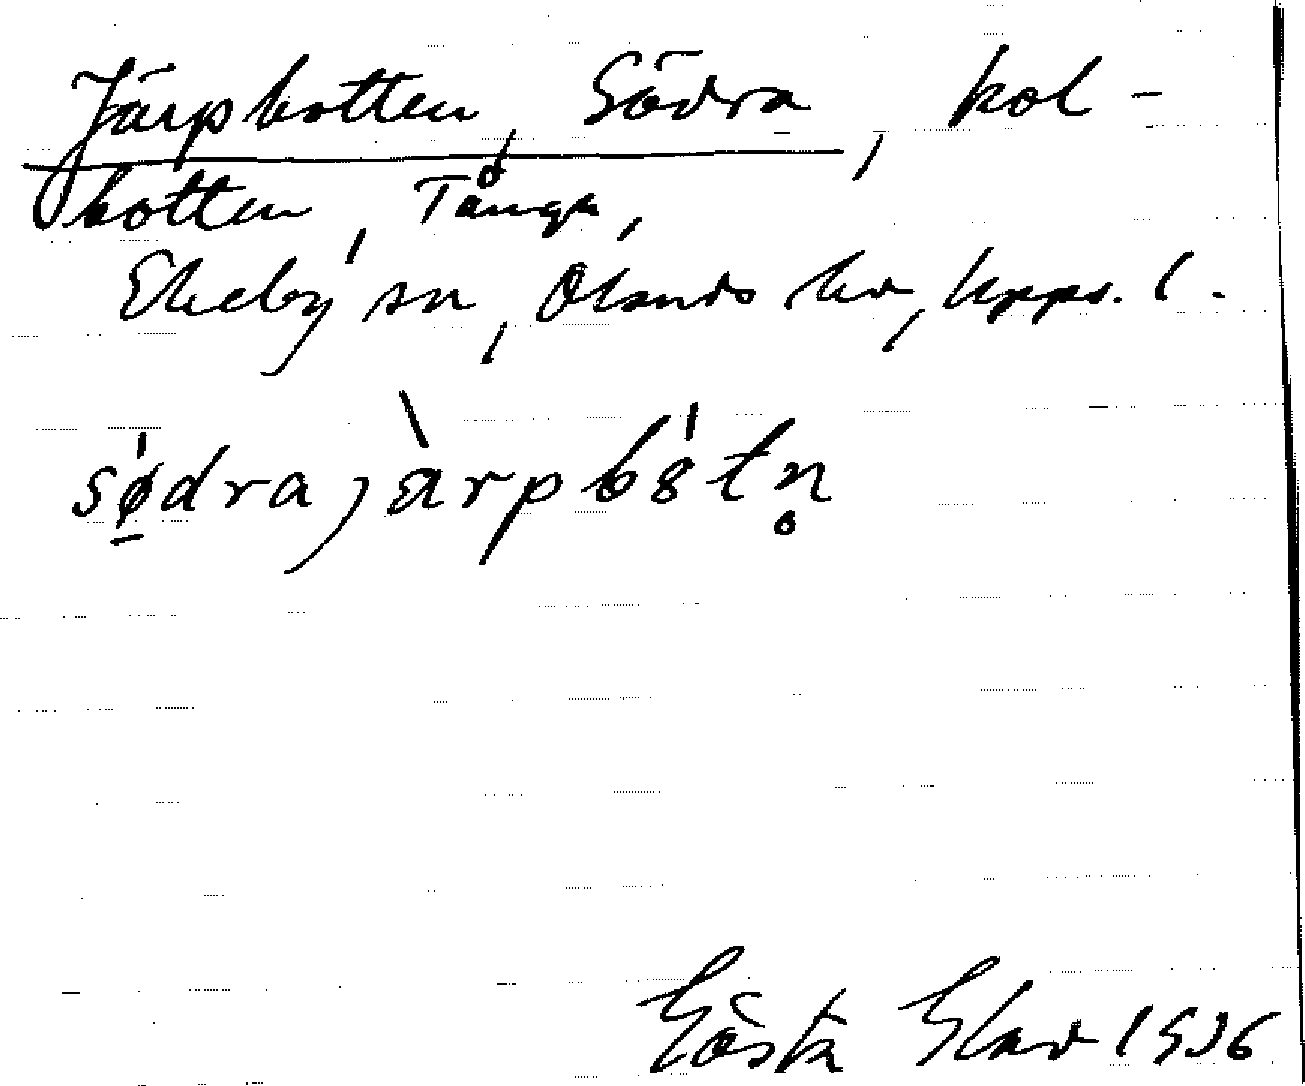 Järpbotten, Södra, kol-
botten, Tånga,
Ekeby sn, Olands hd, Upps. l.
sǿ̱dra jàrpbȣ́tn̥
Gösta 1936